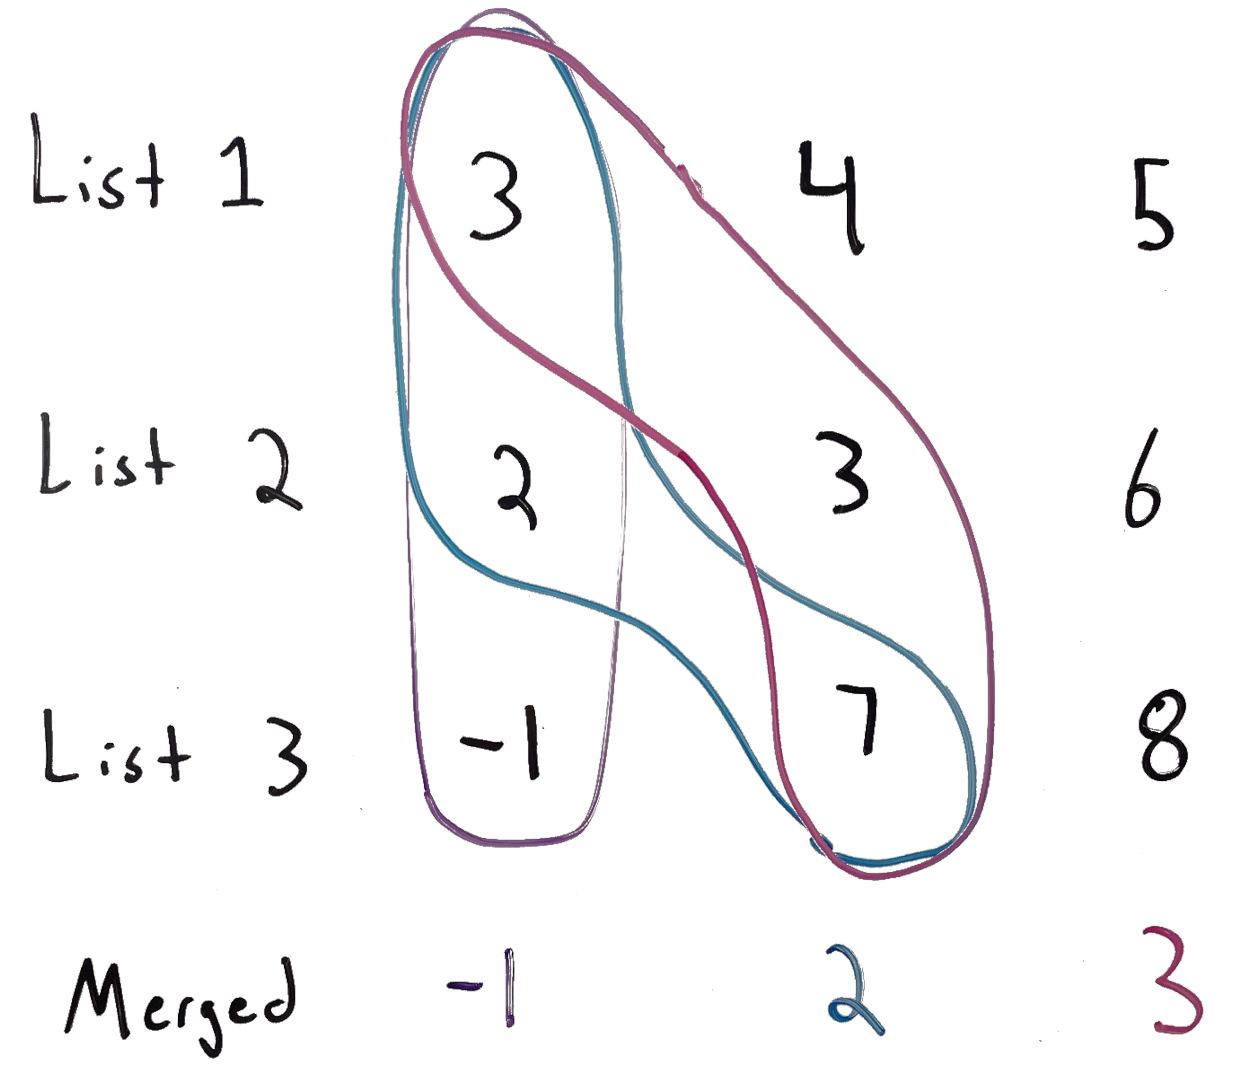 List 1 3 4 5
List 2 2 3 6
List 3 -1 7 8
Merged -1 2 3